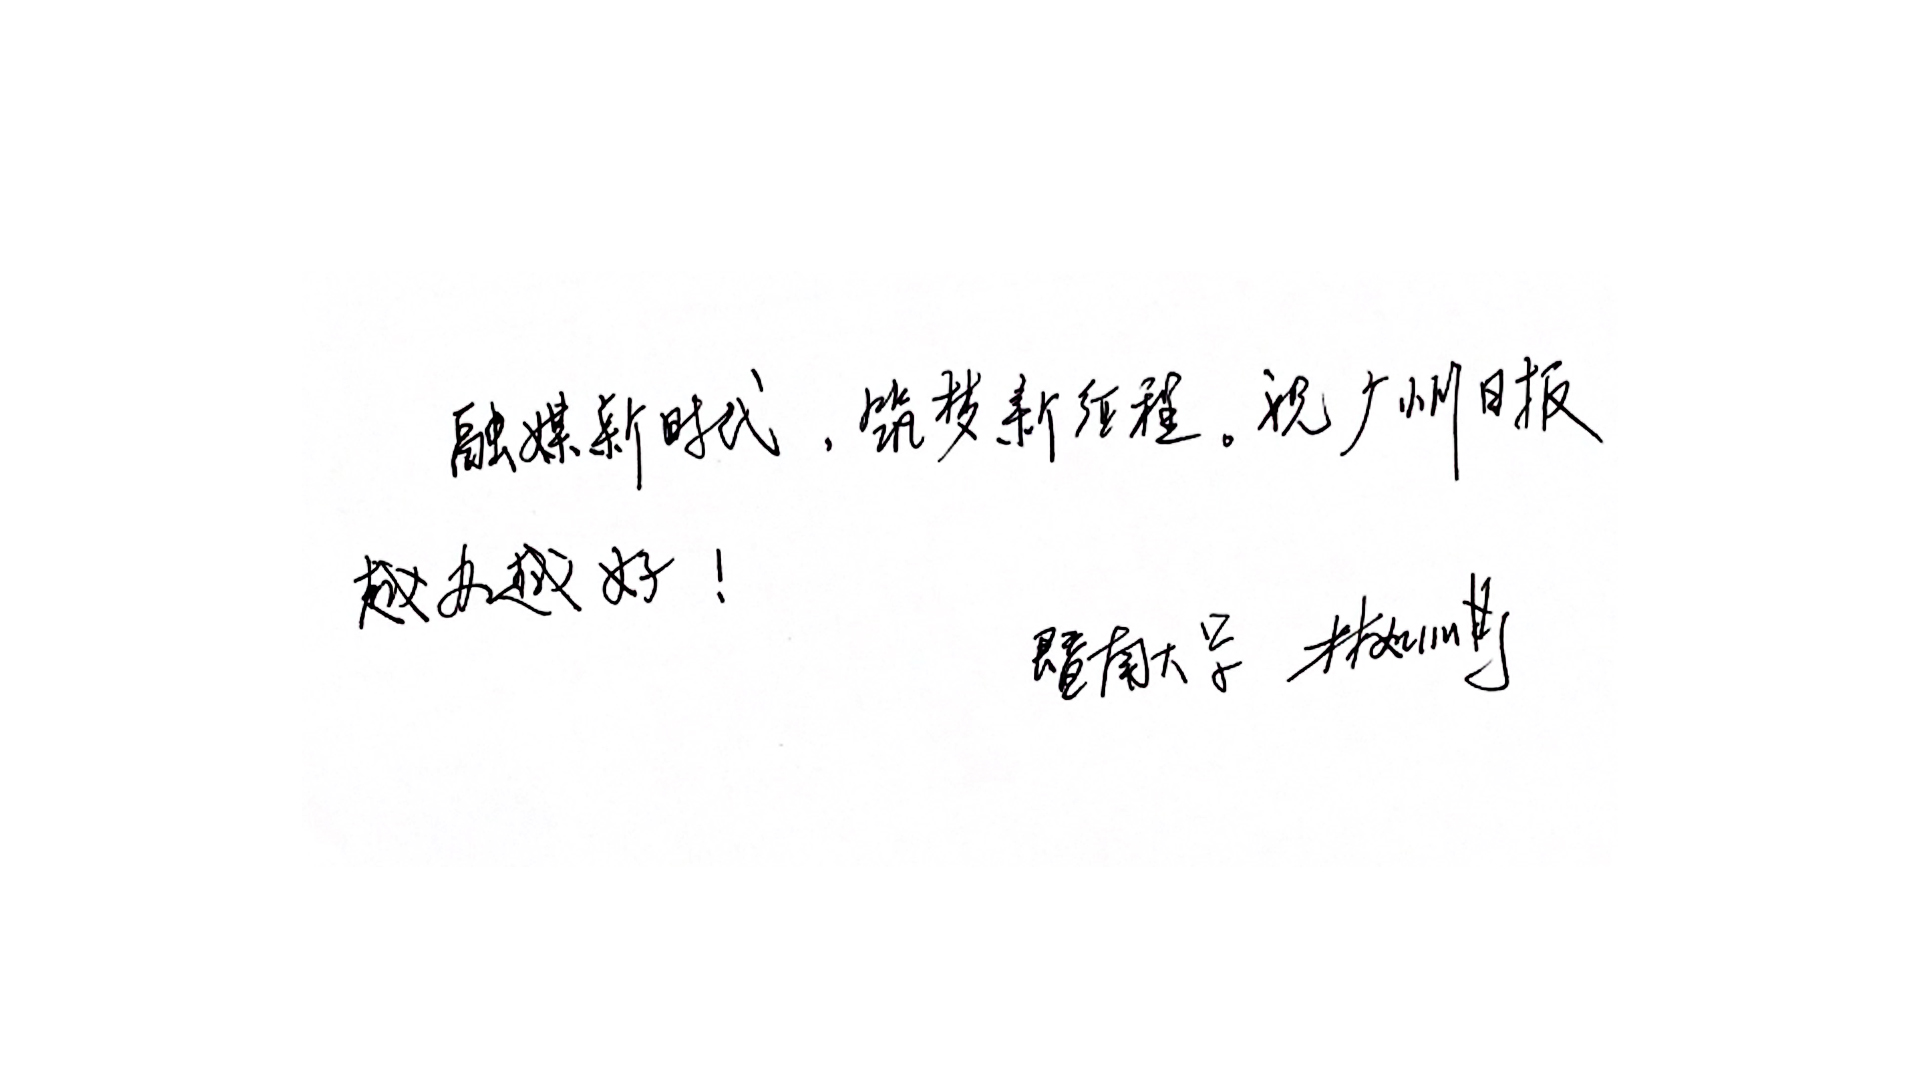 融媒新时代，筑梦新征程。祝广州日报
越办越好！
暨南大学 林如鹏